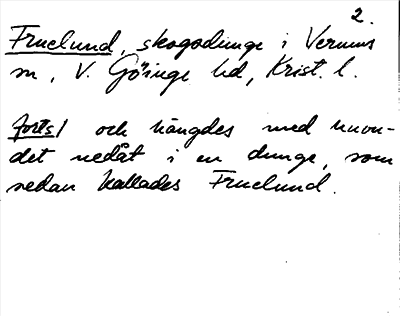 2.
Fruelund, skogsdunge i Verums
sn, V. Göinge hd, Krist. l.
forts/ och hängdes med huvu-
det nedåt i en dunge, som
sedan kallades Fruelund.